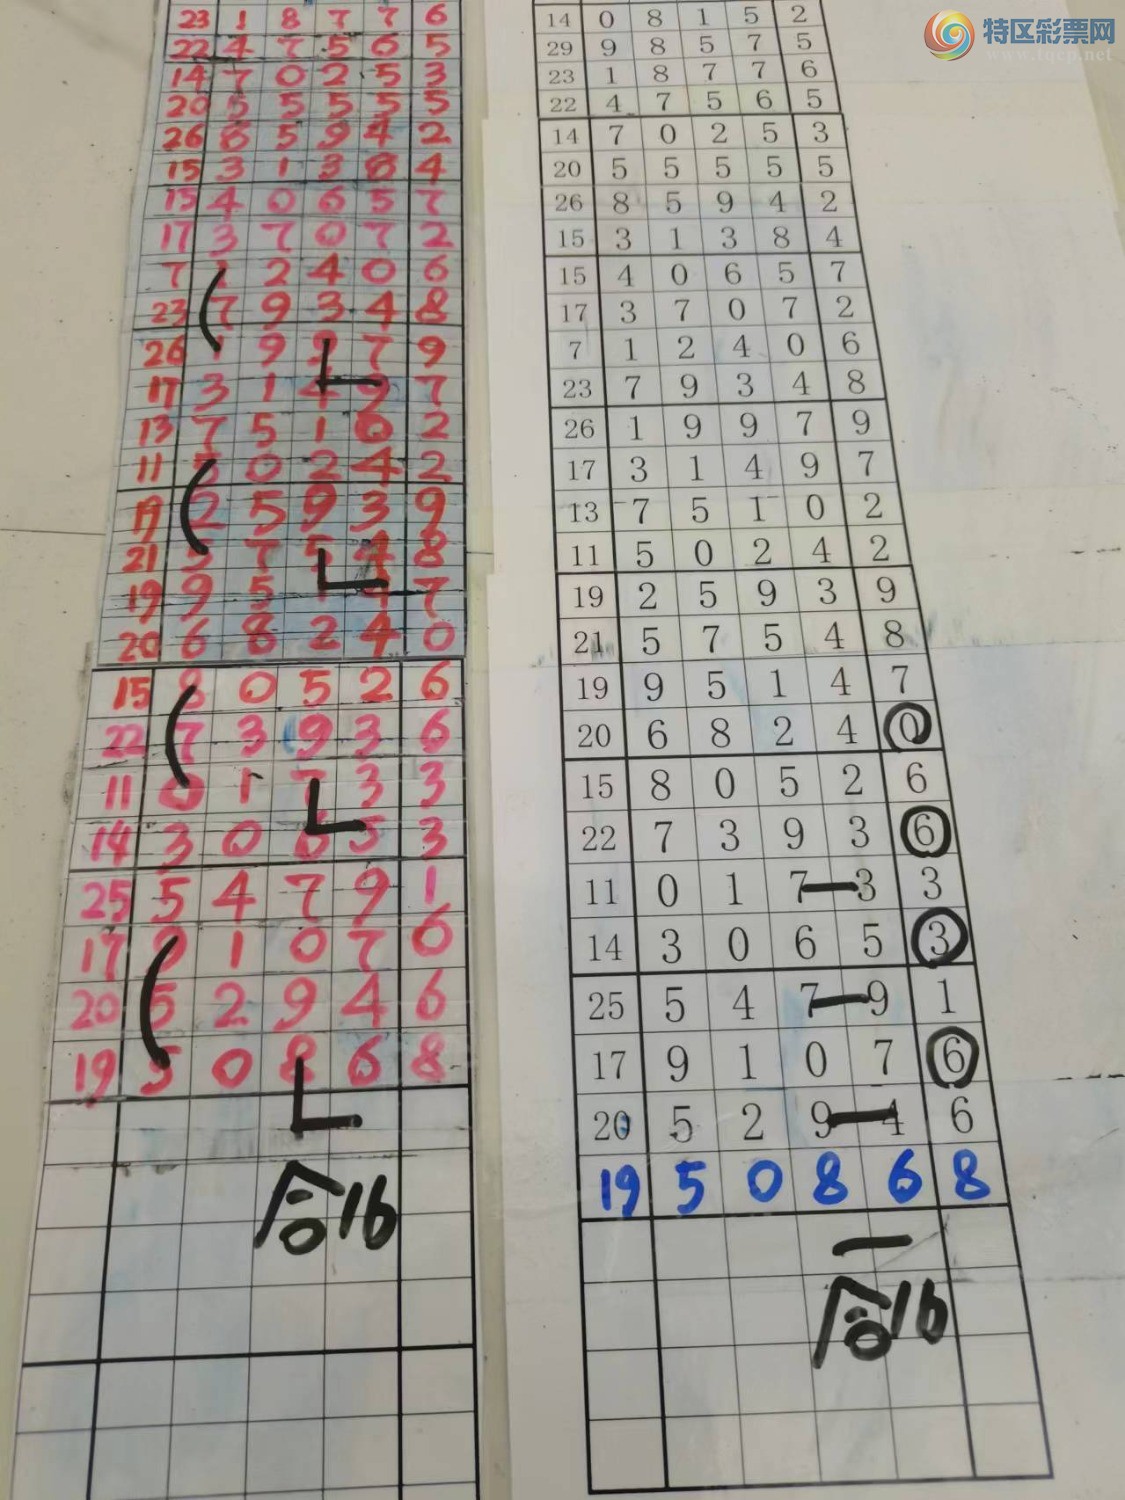 特区彩票网
www.tqcp.net
23 1 8 7 7 6
22 4 7 5 6 5
14 7 0 2 5 3
20 5 5 5 5 5
26 8 5 9 4 2
15 3 1 3 8 4
15 4 0 6 5 7
17 3 7 0 7 2
7 1 2 4 0 6
23 7 9 3 4 8
26 1 9 9 7 9
17 3 1 4 9 7
13 7 5 1 0 2
11 5 0 2 4 2
19 2 5 9 3 9
21 5 7 5 4 8
19 9 5 1 4 7
20 6 8 2 4 0
15 8 0 5 2 6
22 7 3 9 3 6
11 0 1 7 3 3
14 3 0 6 5 3
25 5 4 7 9 1
17 9 1 0 7 6
20 5 2 9 4 6
19 5 0 8 6 8
合16
14 0 8 1 5 2
29 9 8 5 7 5
23 1 8 7 7 6
22 4 7 5 6 5
14 7 0 2 5 3
20 5 5 5 5 5
26 8 5 9 4 2
15 3 1 3 8 4
15 4 0 6 5 7
17 3 7 0 7 2
7 1 2 4 0 6
23 7 9 3 4 8
26 1 9 9 7 9
17 3 1 4 9 7
13 7 5 1 0 2
11 5 0 2 4 2
19 2 5 9 3 9
21 5 7 5 4 8
19 9 5 1 4 7
20 6 8 2 4 0
15 8 0 5 2 6
22 7 3 9 3 6
11 0 1 7 3 3
14 3 0 6 5 3
25 5 4 7 9 1
17 9 1 0 7 6
20 5 2 9 4 6
19 5 0 8 6 8
合16